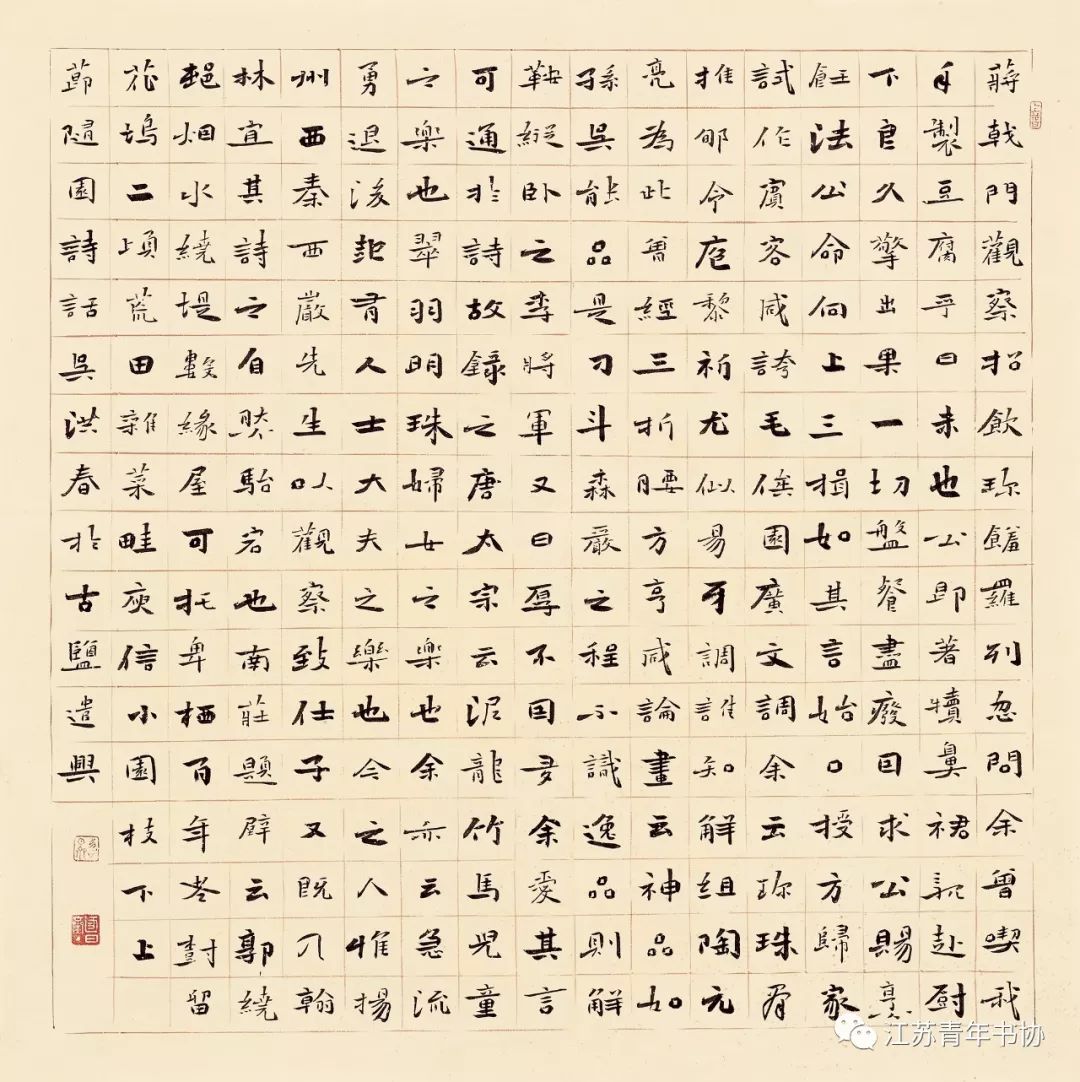 蔣戟門觀察招飲珍饈羅列忽問余曾喫我
手製豆腐乎曰未也公即著犢鼻裙親赴廚
下良久擎出果一切盤餐盡廢因求公賜烹
飪法公命向上三揖如其言始口授方歸家
試作賓客咸誇毛俟園廣文調余云珍珠有
推郇令庖黎祈尤似易牙調誰知解組陶元
亮為此曾經三折腰方亨咸論畫云神品如
孫吳能品是刁斗森嚴之程不識逸品則解
鞍縱卧之李將軍又曰厚不因多余愛其言
可通於詩故錄之唐太宗云泥龍竹馬兒童
之樂也翠羽明珠婦女之樂也余亦云急流
勇退後起有人士大夫之樂也今之人惟揚
州西秦西巖先生以觀察致仕子又既入翰
林宜其詩之自然駘宕也南莊題壁云郭繞
烟水繞堤數緣屋可托卑栖百年岑對留
花塢二頃荒田雜菜畦庾信小園枝下上
節隨園詩話吳洪春於古鹽遣興
江苏青年书协